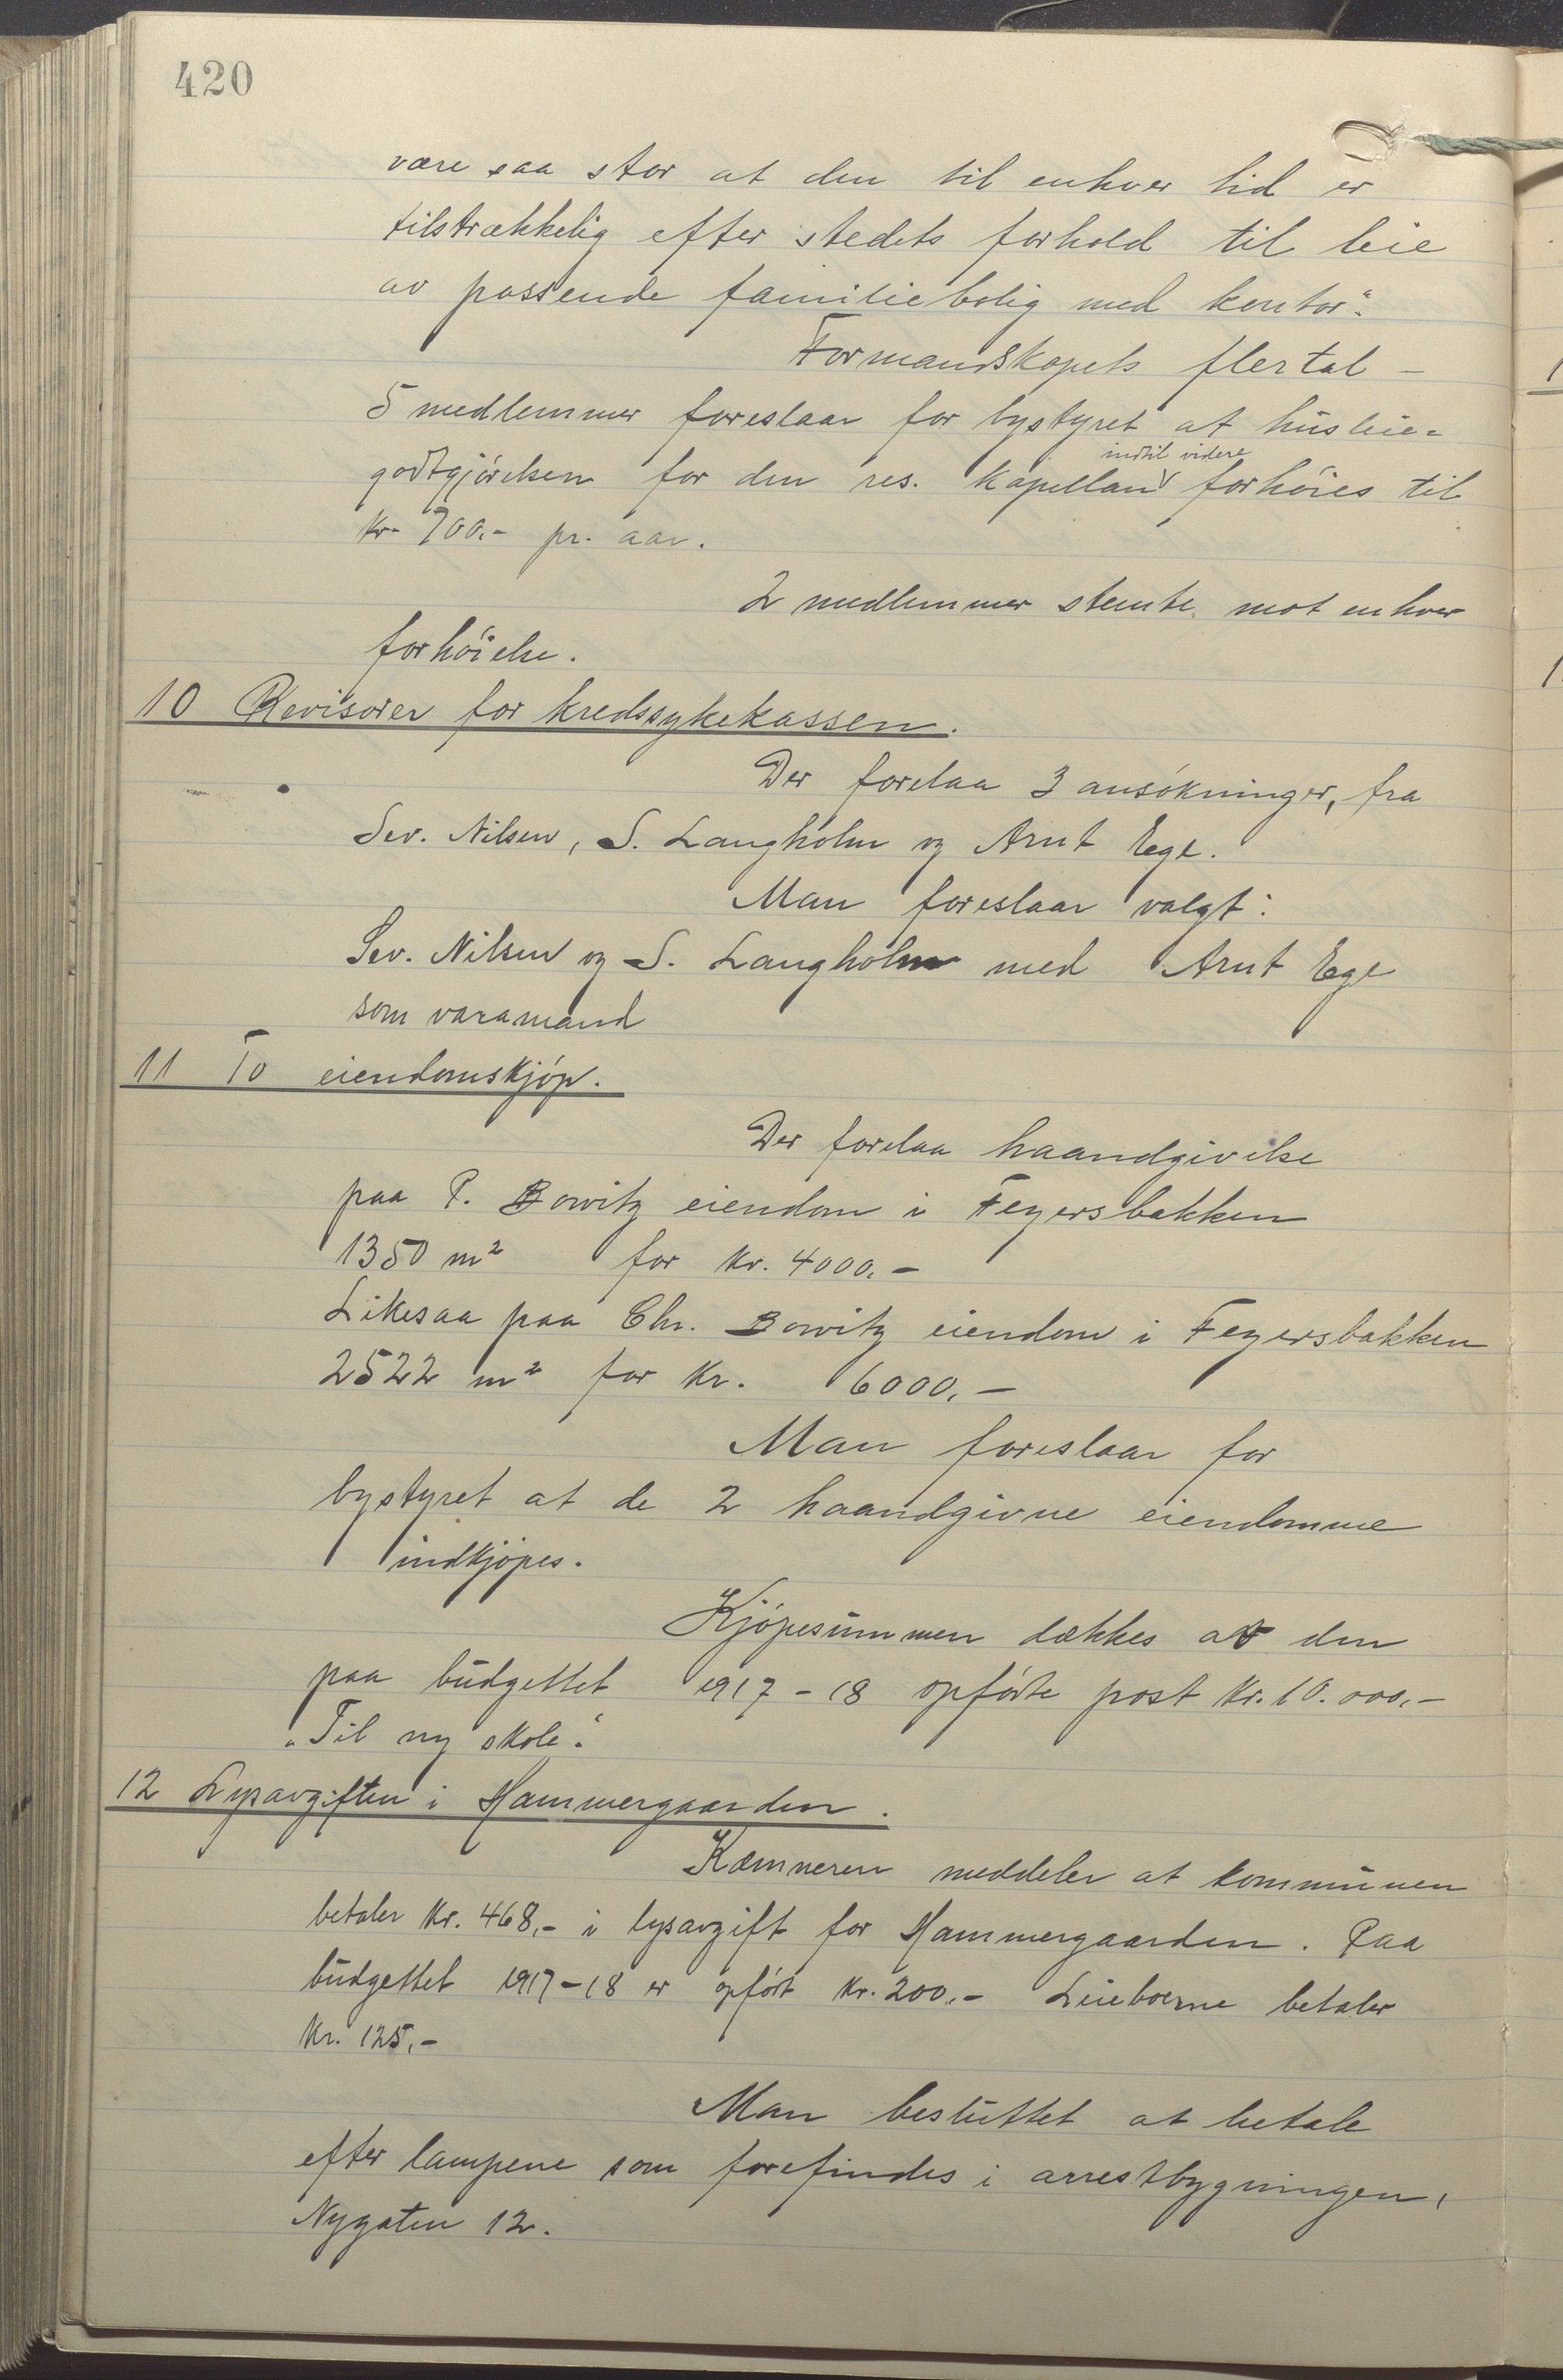 420
være saa stor at den til enhver tid er
tilstrækkelig efter stedets forhold til leie
av passende familiebolig med kontor".
Formandskapets flertal –
5 medlemmer foreslaar for bystyret at husleie=
indtil videre
godtgjörelsen for den res. kapellan forhöies til
kr. 700.- pr. aar.
2 medlemmer stemte mot enhver
forhöielse.
10 Revisorer for kredssykekassen.
Der forelaa 3 ansökninger, fra
Sev. Nilsen, S. Langholm og Arnt Ege.
Man foreslaar valgt:
Sev. Nilsen og S. Langholm med Arnt Ege
som varamand
11 To eiendomskjöp.
Der forelaa haandgivelse
paa P. Bowitz eiendom i Feyersbakken
1350 m² for kr. 4000.-
Likesaa paa Chr. Bowitz eiendom i Feyersbakken
2522 m² for kr. 6000.-
Man foreslaar for
bystyret at de 2 haandgivne eiendomme
indkjöpes.
Kjöpesummen dækkes av den
paa budgettet 1917-18 opförte post kr. 10.000.-
"Til ny skole".
12 Lysavgiften i Hammergaarden.
Kæmneren meddeler at kommunen
betaler kr. 468.- i lysavgift for Hammergaarden. Paa
budgettet 1917-18 er opfört kr. 200.- Leieboerne betaler
kr. 125.-
Man besluttet at betale
efter lampene som forefindes i arrestbygningen,
Nygaten 12.